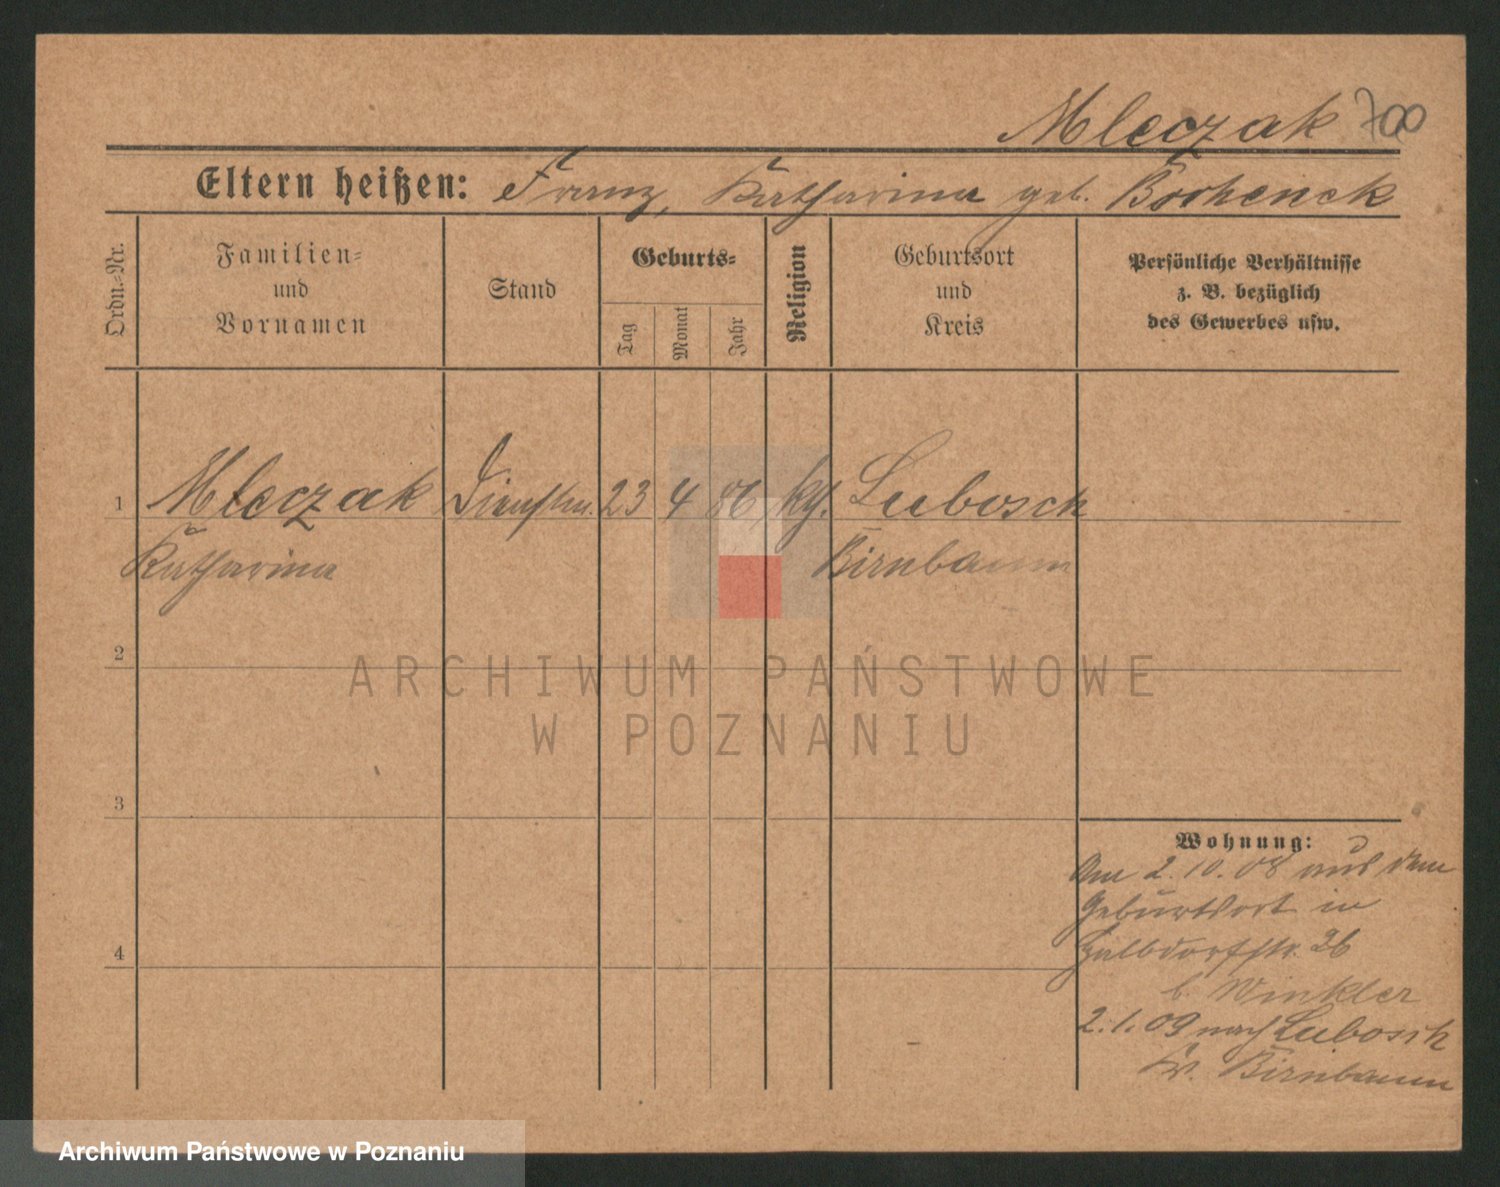 Mleczak 700
Eltern heißen: Franz, Katharina geb.
Ordn.-Nr.
Familien-
und
Vornamen
Stand
Geburts-
Tag
Monat
Jahr
Religion
Geburtsort
und
Kreis
Persönliche Verhältnisse
z. B. bezüglich
des Gewerbes usw.
1 Mleczak Dienstm. 23 4 kth. Lubosch
Katharina Birnbaum
2
ARCHIWUM PAŃSTWOWE
W POZNANIU
3
Wohnung:
Am 2.10.08 aus dem
Geburtsort in
4
Halbdorfstr. 26
b. Winkler
2.1.09 nach Lubosch
Kr. Birnbaum
Archiwum Państwowe w Poznaniu